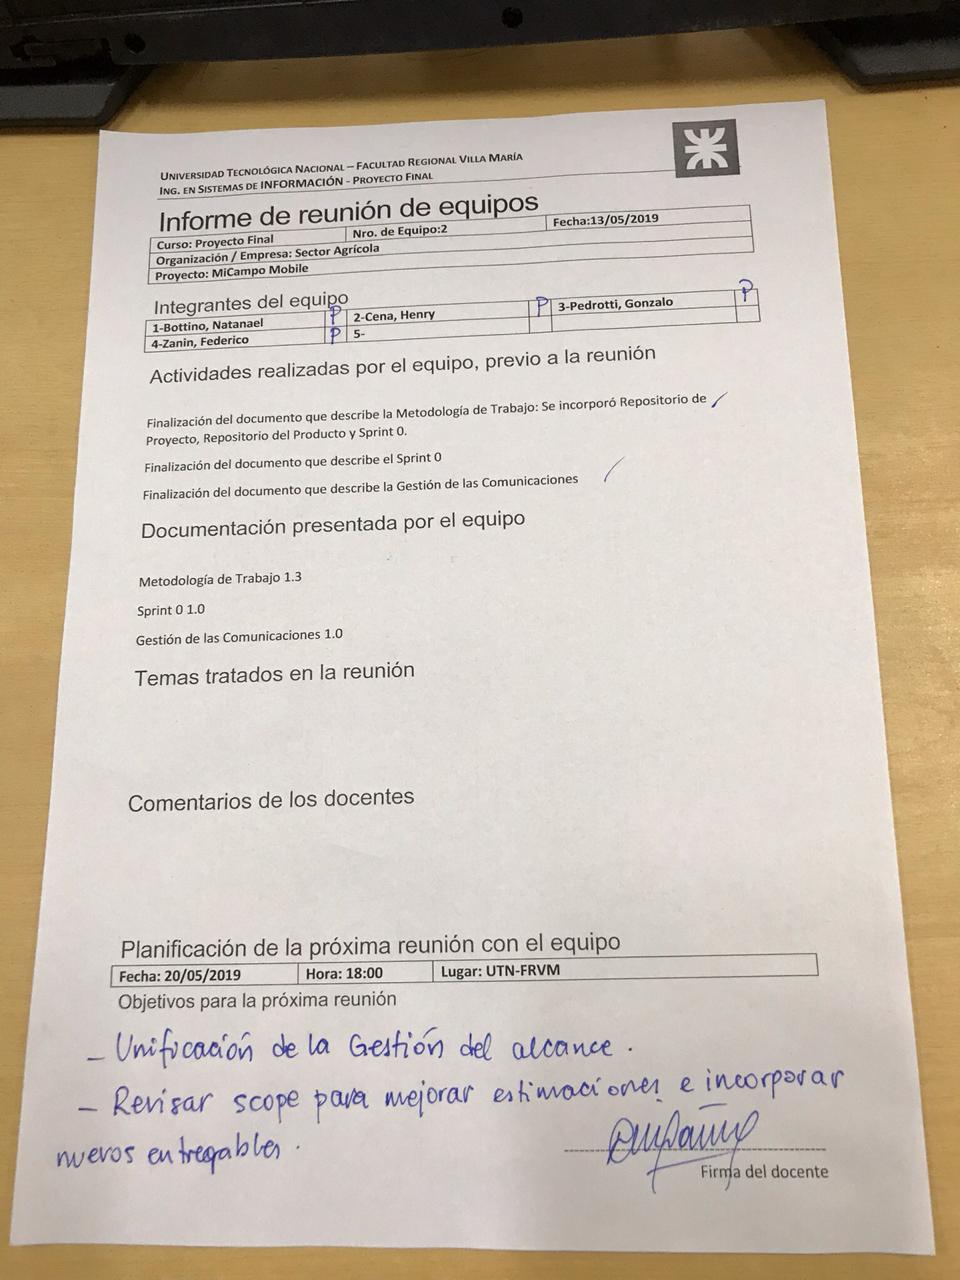 UNIVERSIDAD TECNOLÓGICA NACIONAL – FACULTAD REGIONAL VILLA MARÍA
ING. EN SISTEMAS DE INFORMACIÓN - PROYECTO FINAL
Informe de reunión de equipos
Curso: Proyecto Final Nro. de Equipo:2 Fecha:13/05/2019
Organización / Empresa: Sector Agrícola
Proyecto: MiCampo Mobile
Integrantes del equipo
1-Bottino, Natanael P 2-Cena, Henry P 3-Pedrotti, Gonzalo P
4-Zanin, Federico P 5-
Actividades realizadas por el equipo, previo a la reunión
Finalización del documento que describe la Metodología de Trabajo: Se incorporó Repositorio de
Proyecto, Repositorio del Producto y Sprint 0.
Finalización del documento que describe el Sprint 0
Finalización del documento que describe la Gestión de las Comunicaciones
Documentación presentada por el equipo
Metodología de Trabajo 1.3
Sprint 0 1.0
Gestión de las Comunicaciones 1.0
Temas tratados en la reunión
Comentarios de los docentes
Planificación de la próxima reunión con el equipo
Fecha: 20/05/2019 Hora: 18:00 Lugar: UTN-FRVM
Objetivos para la próxima reunión
– Unificación de la Gestión del alcance.
– Revisar scope para mejorar estimaciones e incorporar
nuevos entregables.
Firma del docente